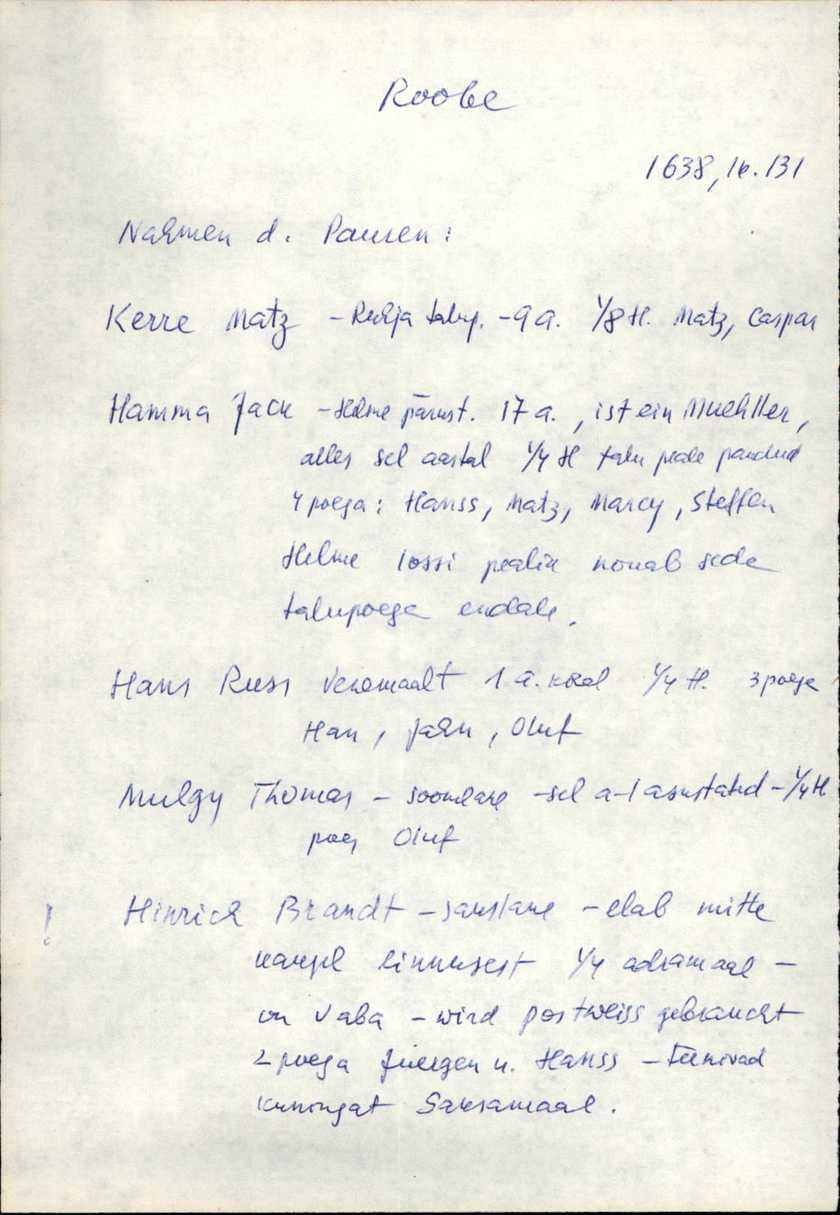 Roobe
1638, lk. 131
Nahmen d. Pauren:
Kerre Matz - Ruhja talup. - 9 a. 1/8 H. Matz, Caspar
Hamma Jack - Helme pärust. 17 a., ist ein Muehller,
alles sel aastal 1/4 H talu peale pandud
4 poega: Hanss, Matz, Marcy, Steffen
Helme lossi pealik nouab seda
talupoega endale.
Hans Russ Venemaalt 1 a. kool 1/4 H. 3 poega
Han, Jahn, Oluf
Mulgy Thomas - soomlane - sel a-l asustatud - 1/4 H
poeg Oluf
! Hinrich Brandt - sakslane - elab mitte
kaugel linnusest 1/4 adramaal -
on vaba - wird postweiss gebraucht
2 poega Juergen u. Hanss - teenivad
kuningat Saksamaal.